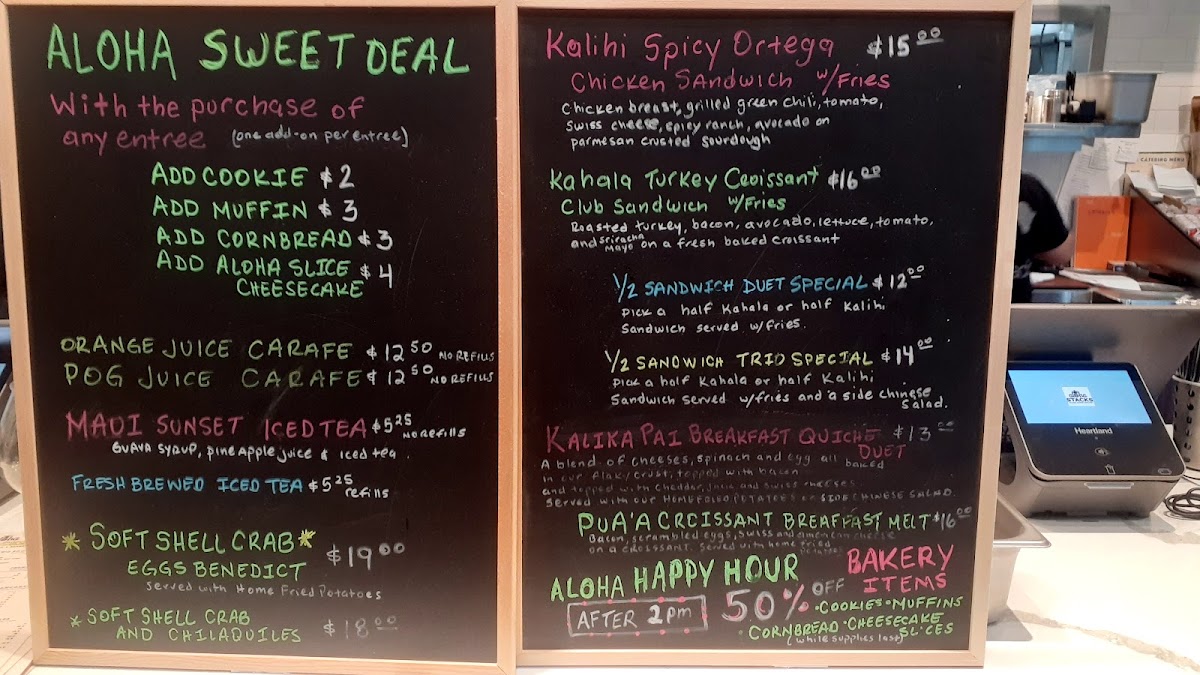 ALOHA SWEET DEAL
With the purchase of
any entree [one add-on per entree]
ADD COOKIE $2
ADD MUFFIN $3
ADD CORNBREAD $3
ADD ALOHA SLICE $4
CHEESECAKE
ORANGE JUICE CARAFE $12 50 NO REFILLS
POG JUICE CARAFE $12 50 NO REFILLS
MAUI SUNSET ICED TEA $5 25
NO REFILLS
GUAVA SYRUP, PINEAPPLE JUICE & ICED TEA.
FRESH BREWED ICED TEA $5 25
refills
*SOFT SHELL CRAB*
EGGS BENEDICT $19 00
Served with Home Fried Potatoes
*SOFT SHELL CRAB
AND CHILAQUILES $18 00
Kalihi Spicy Ortega $15 00
Chicken Sandwich w/Fries
Chicken breast, grilled green chili, tomato,
Swiss cheese, spicy ranch, avocado on
parmesan crusted sourdough
Kahala Turkey Croissant $16 00
Club Sandwich w/Fries
Roasted turkey, bacon, avocado, lettuce, tomato,
and sriracha mayo on a fresh baked croissant
1/2 SANDWICH DUET SPECIAL $12 00
Pick a half Kahala or half Kalihi
Sandwich served w/fries.
1/2 SANDWICH TRIO SPECIAL $14 00
Pick a half Kahala or half Kalihi
Sandwich served w/fries and a side Chinese
Salad.
KALIKA PAI BREAKFAST QUICHE $13 00
DUET
A blend of cheeses, spinach and egg all baked
in our flaky crust, topped with bacon
and topped with cheddar, jack and swiss cheeses.
Served with our HOMEFRIED POTATOES or SIDE CHINESE SALAD.
PUA'A CROISSANT BREAKFAST MELT $16 00
Bacon, scrambled eggs, swiss and american cheese
on a croissant. Served with home fried
potatoes
ALOHA HAPPY HOUR
AFTER 2pm
50% OFF
BAKERY
ITEMS
•COOKIES•MUFFINS
•CORNBREAD•CHEESECAKE
SLICES
(while supplies last)
CATERING MENU
STACKS
Heartland